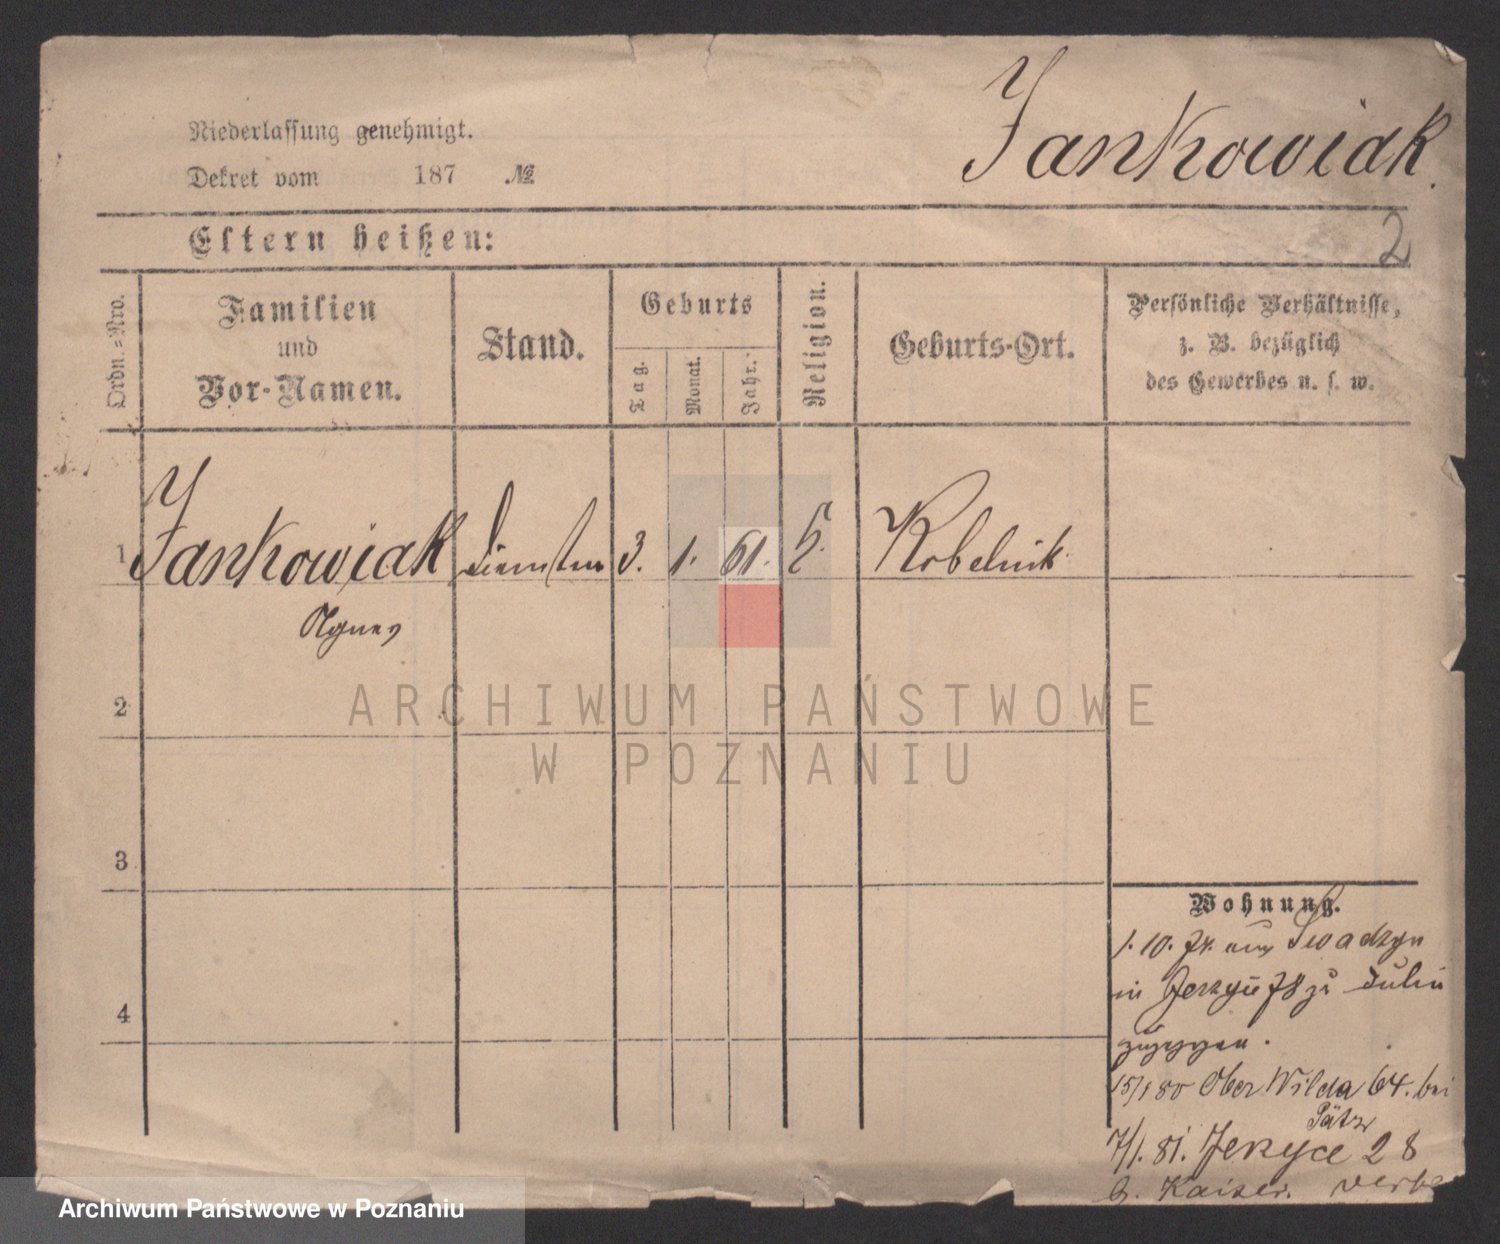 Jankowiak.
Niederlassung genehmigt.
Dekret vom 187 №
2
Eltern heißen:
Ordn.=Nro.
Familien
und
Vor-Namen.
Stand.
Geburts
Tag.
Monat.
Jahr.
Religion.
Geburts-Ort.
Persönliche Verhältnisse,
z. B. bezüglich
des Gewerbes u. s. w.
1 Jankowiak 3. 1. 61. Kobelnik.
Agnes
2
ARCHIWUM PAŃSTWOWE
W POZNANIU
3
Wohnung.
1. 10. aus Swadzyn
in
4
zugezogen.
15/1 80 Ober Wilda 64. bei
7/1. 81. Jerzyce 28
b. Kaiser.
Archiwum Państwowe w Poznaniu